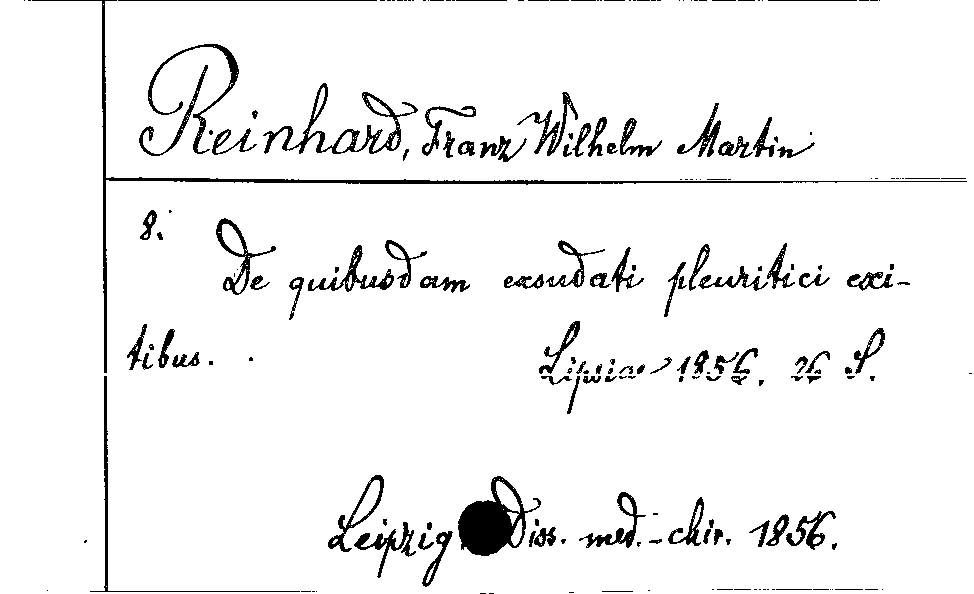 Reinhard, Franz Wilhelm Martin
8.
De quibusdam exsudati pleuritici exi-
tibus.
Lipsiae 1856. 26 S.
Leipzig Diss. med.-chir. 1856.